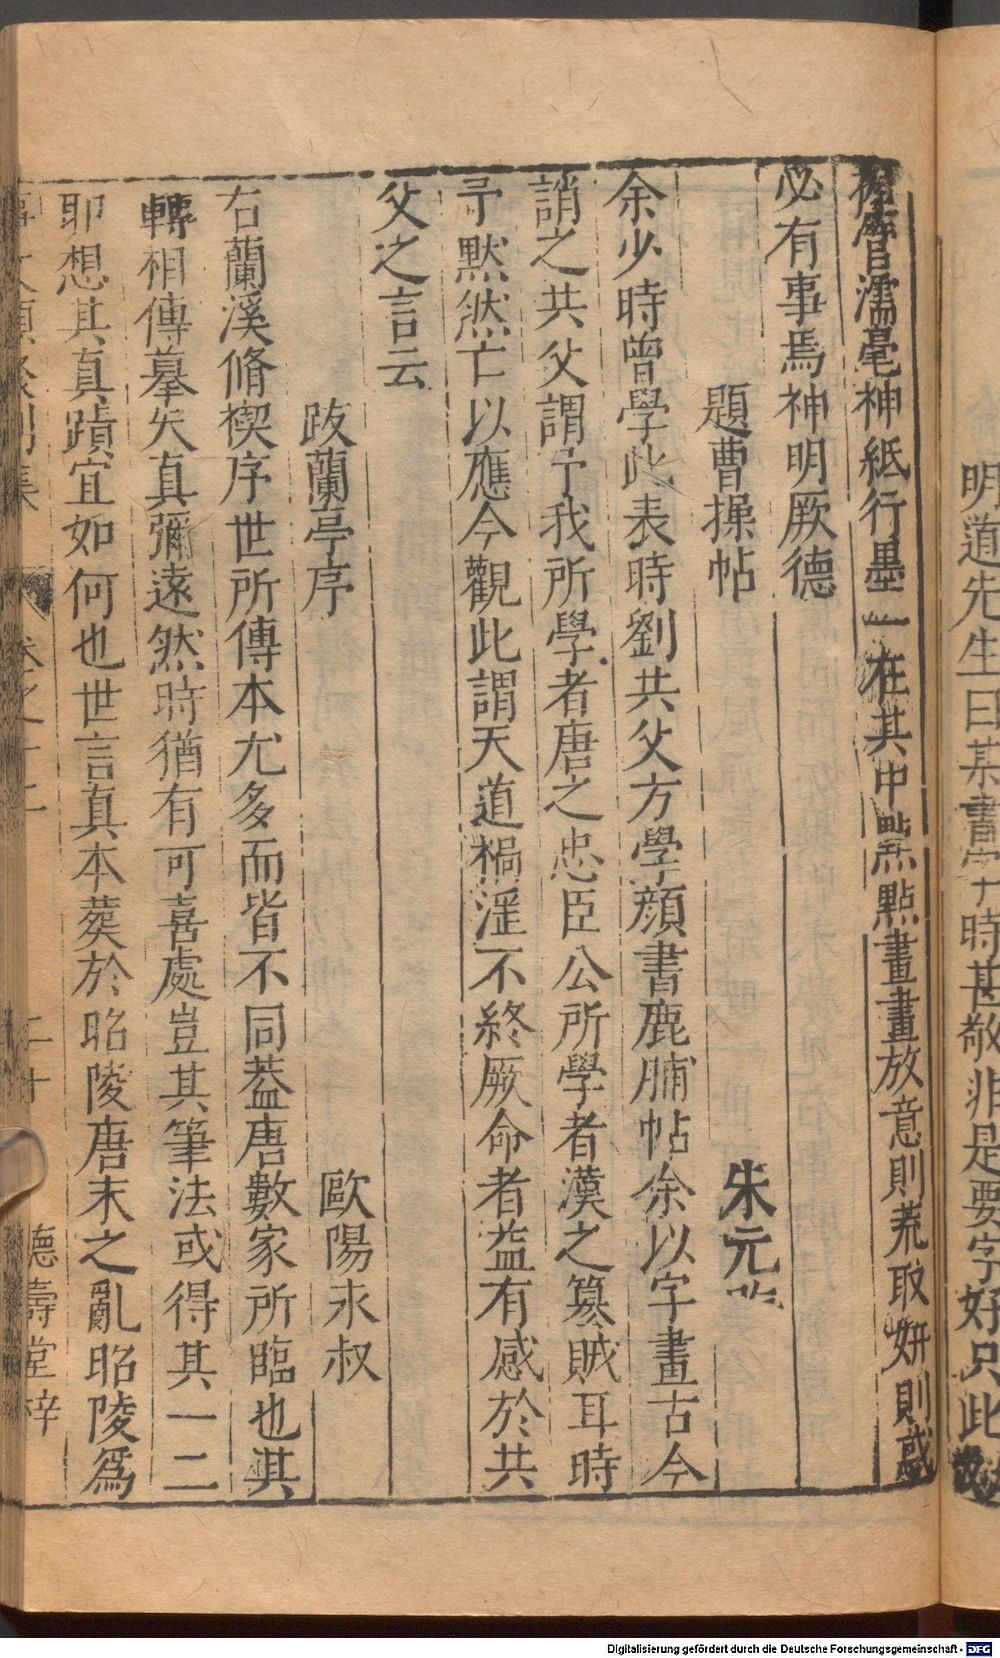 明道先生曰某書字時甚敬非是要字好只此
握管濡毫神紙行墨一在其中點點畫畫放意則荒取妍則惑
必有事焉神明厥德
題曹操帖 朱元
余少時曾學此表時劉共父方學顏書鹿脯帖余以字畫古今
誚之共父謂予我所學者唐之忠臣公所學者漢之篡賊耳時
予默然亡以應今觀此謂天道禍淫不終厥命者益有感於共
父之言云
跋蘭亭序 歐陽永叔
右蘭溪脩禊序世所傳本尤多而皆不同葢唐數家所臨也其
轉相傳摹失真彌遠然時猶有可喜處豈其筆法或得其一二
耶想其真蹟宜如何也世言真本葬於昭陵唐末之亂昭陵爲
事文類聚別集 卷之十二 二十 德壽堂梓
Digitalisierung gefördert durch die Deutsche Forschungsgemeinschaft - DFG